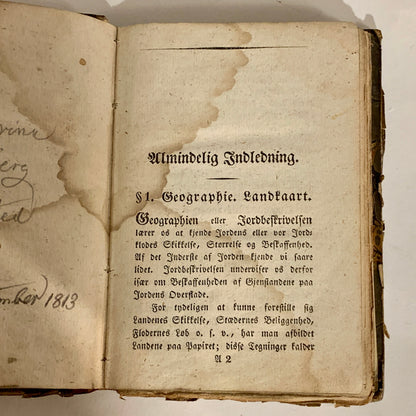 vine
erg
ted
mber 1813
Almindelig Indledning.
§ 1. Geographie. Landkaart.
Geographien eller Jordbeskrivelsen
lærer os at kjende Jordens eller vor Jord-
klodes Skikkelse, Størrelse og Beskaffenhed.
Af det Inderste af Jorden kjende vi saare
lidet. Jordbeskrivelsen underviser os derfor
især om Beskaffenheden af Gjenstandene paa
Jordens Overflade.
For tydeligen at kunne forestille sig
Landenes Skikkelse, Stædernes Beliggenhed,
Flodernes Løb o. s. v., har man afbildet
Landene paa Papiret; disse Tegninger kalder
A 2